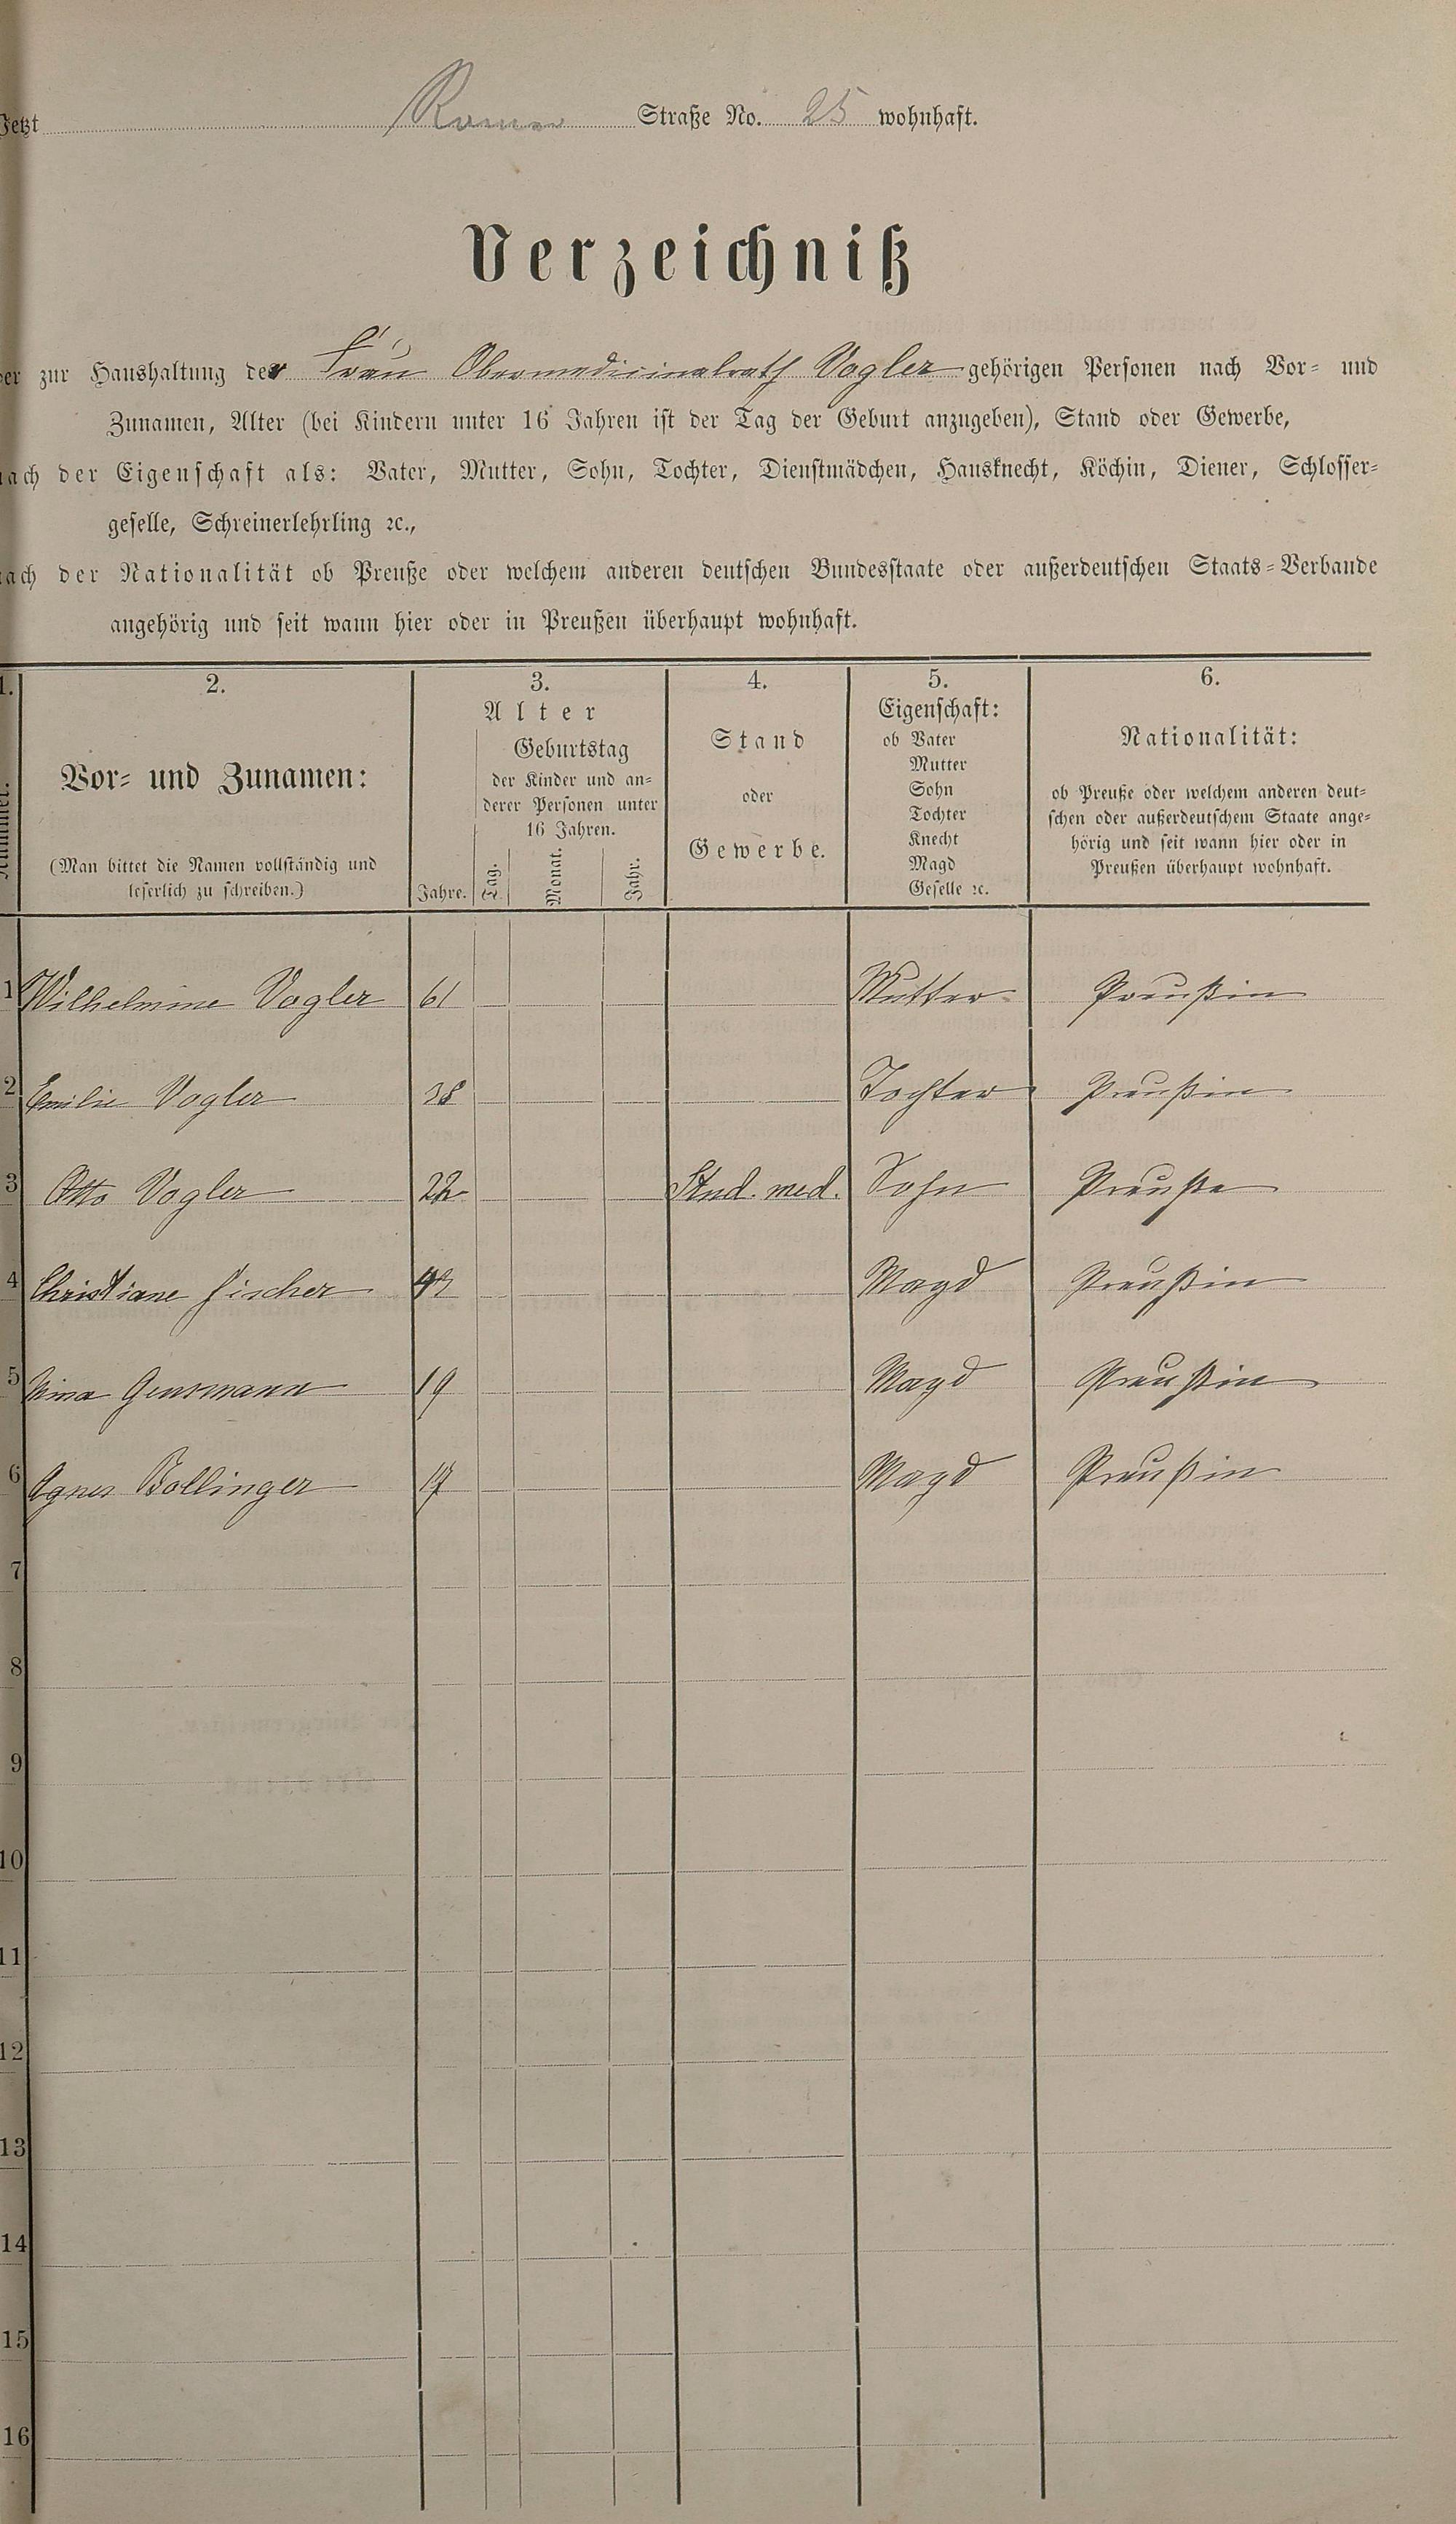 Jetzt Römer Straße No. 25 wohnhaft.
Verzeichniß
der zur Haushaltung der Frau Obermedicinalrath Vogler gehörigen Personen nach Vor- und
Zunamen, Alter (bei Kindern unter 16 Jahren ist der Tag der Geburt anzugeben), Stand oder Gewerbe,
nach der Eigenschaft als: Vater, Mutter, Sohn, Tochter, Dienstmädchen, Hausknecht, Köchin, Diener, Schlosser-
geselle, Schreinerlehrling ꝛc.,
nach der Nationalität ob Preuße oder welchem anderen deutschen Bundesstaate oder außerdeutschen Staats-Verbande
angehörig und seit wann hier oder in Preußen überhaupt wohnhaft.
1. 2. 3. 4. 5. 6.
Nummer.
Vor- und Zunamen:
(Man bittet die Namen vollständig und
leserlich zu schreiben.)
Alter
Geburtstag
der Kinder und an-
derer Personen unter
16 Jahren.
Jahre. Tag. Monat. Jahr.
Stand
oder
Gewerbe.
Eigenschaft:
ob Vater
Mutter
Sohn
Tochter
Knecht
Magd
Geselle ꝛc.
Nationalität:
ob Preuße oder welchem anderen deut-
schen oder außerdeutschem Staate ange-
hörig und seit wann hier oder in
Preußen überhaupt wohnhaft.
1 Wilhelmine Vogler 61 Mutter Preußin
2 Emilie Vogler 38 Tochter Preußin
3 Otto Vogler 22 Stud. med. Sohn Preuße
4 Christiane Fischer Magd Preußin
5 Mina 19 Magd Preußin
6 Agnes Bollinger 17 Magd Preußin
7
8
9
10
11
12
13
14
15
16